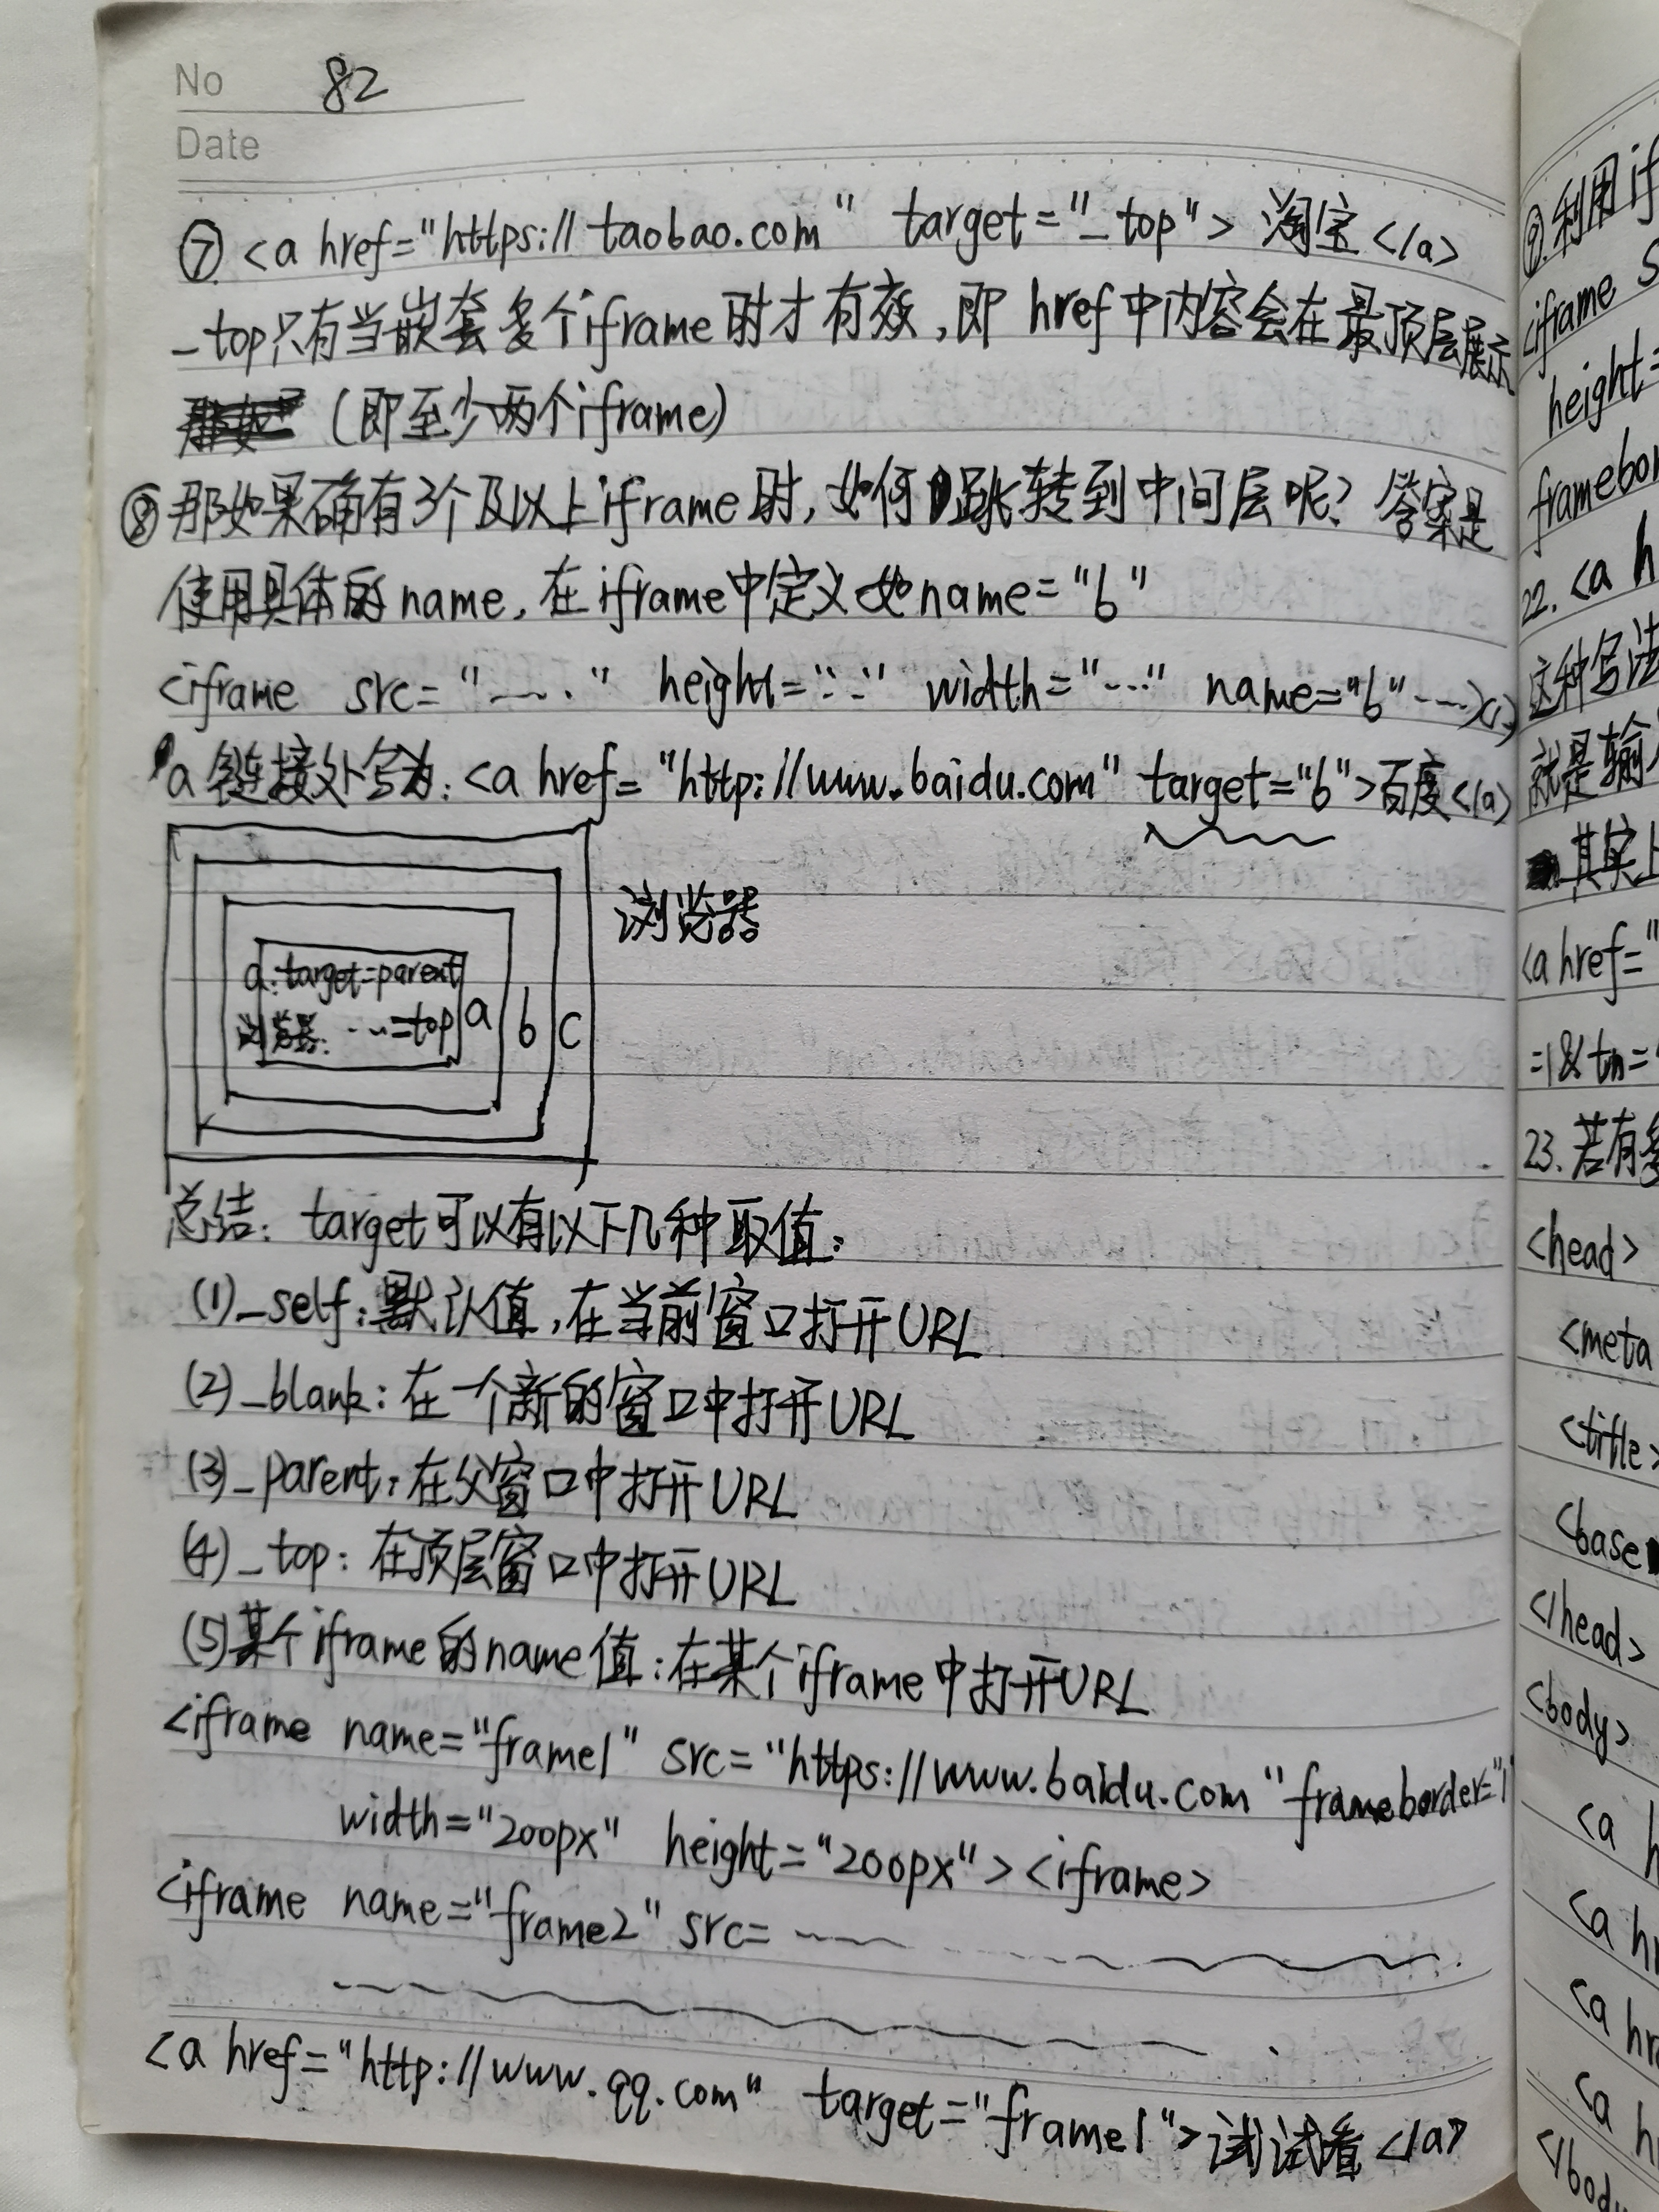 No 82
Date
⑦ <a href="https://taobao.com" target="_top">淘宝</a>
_top只有当嵌套多个iframe时才有效,即 href中内容会在最顶层展示
(即至少两个iframe)
⑧ 那如果确有3个及以上iframe时,如何跳转到中间层呢?答案是
使用具体的name,在iframe中定义如name="b"
<iframe src="....." height="..." width="..." name="b"...></>
a链接处写为:<a href="http://www.baidu.com" target="b">百度</a>
浏览器
a:target=parent
浏览器:...=top
a b c
总结:target可以有以下几种取值:
(1)_self:默认值,在当前窗口打开URL
(2)_blank:在一个新的窗口中打开URL
(3)_parent:在父窗口中打开URL
(4)_top:在顶层窗口中打开URL
(5)某个iframe的name值:在某个iframe中打开URL
<iframe name="frame1" src="https://www.baidu.com" frameborder="1"
width="200px" height="200px"><iframe>
<iframe name="frame2" src=
<a href="http://www.qq.com" target="frame1">试试看</a>
⑨.利用if
<iframe s
height=
framebor
22. <a h
这种写法
就是输入
其实上
<a href="
=1&tn=
23. 若有多
<head>
<meta
<title>
<base
</head>
<body>
<a h
<a hr
<a hr
<a h
</bod